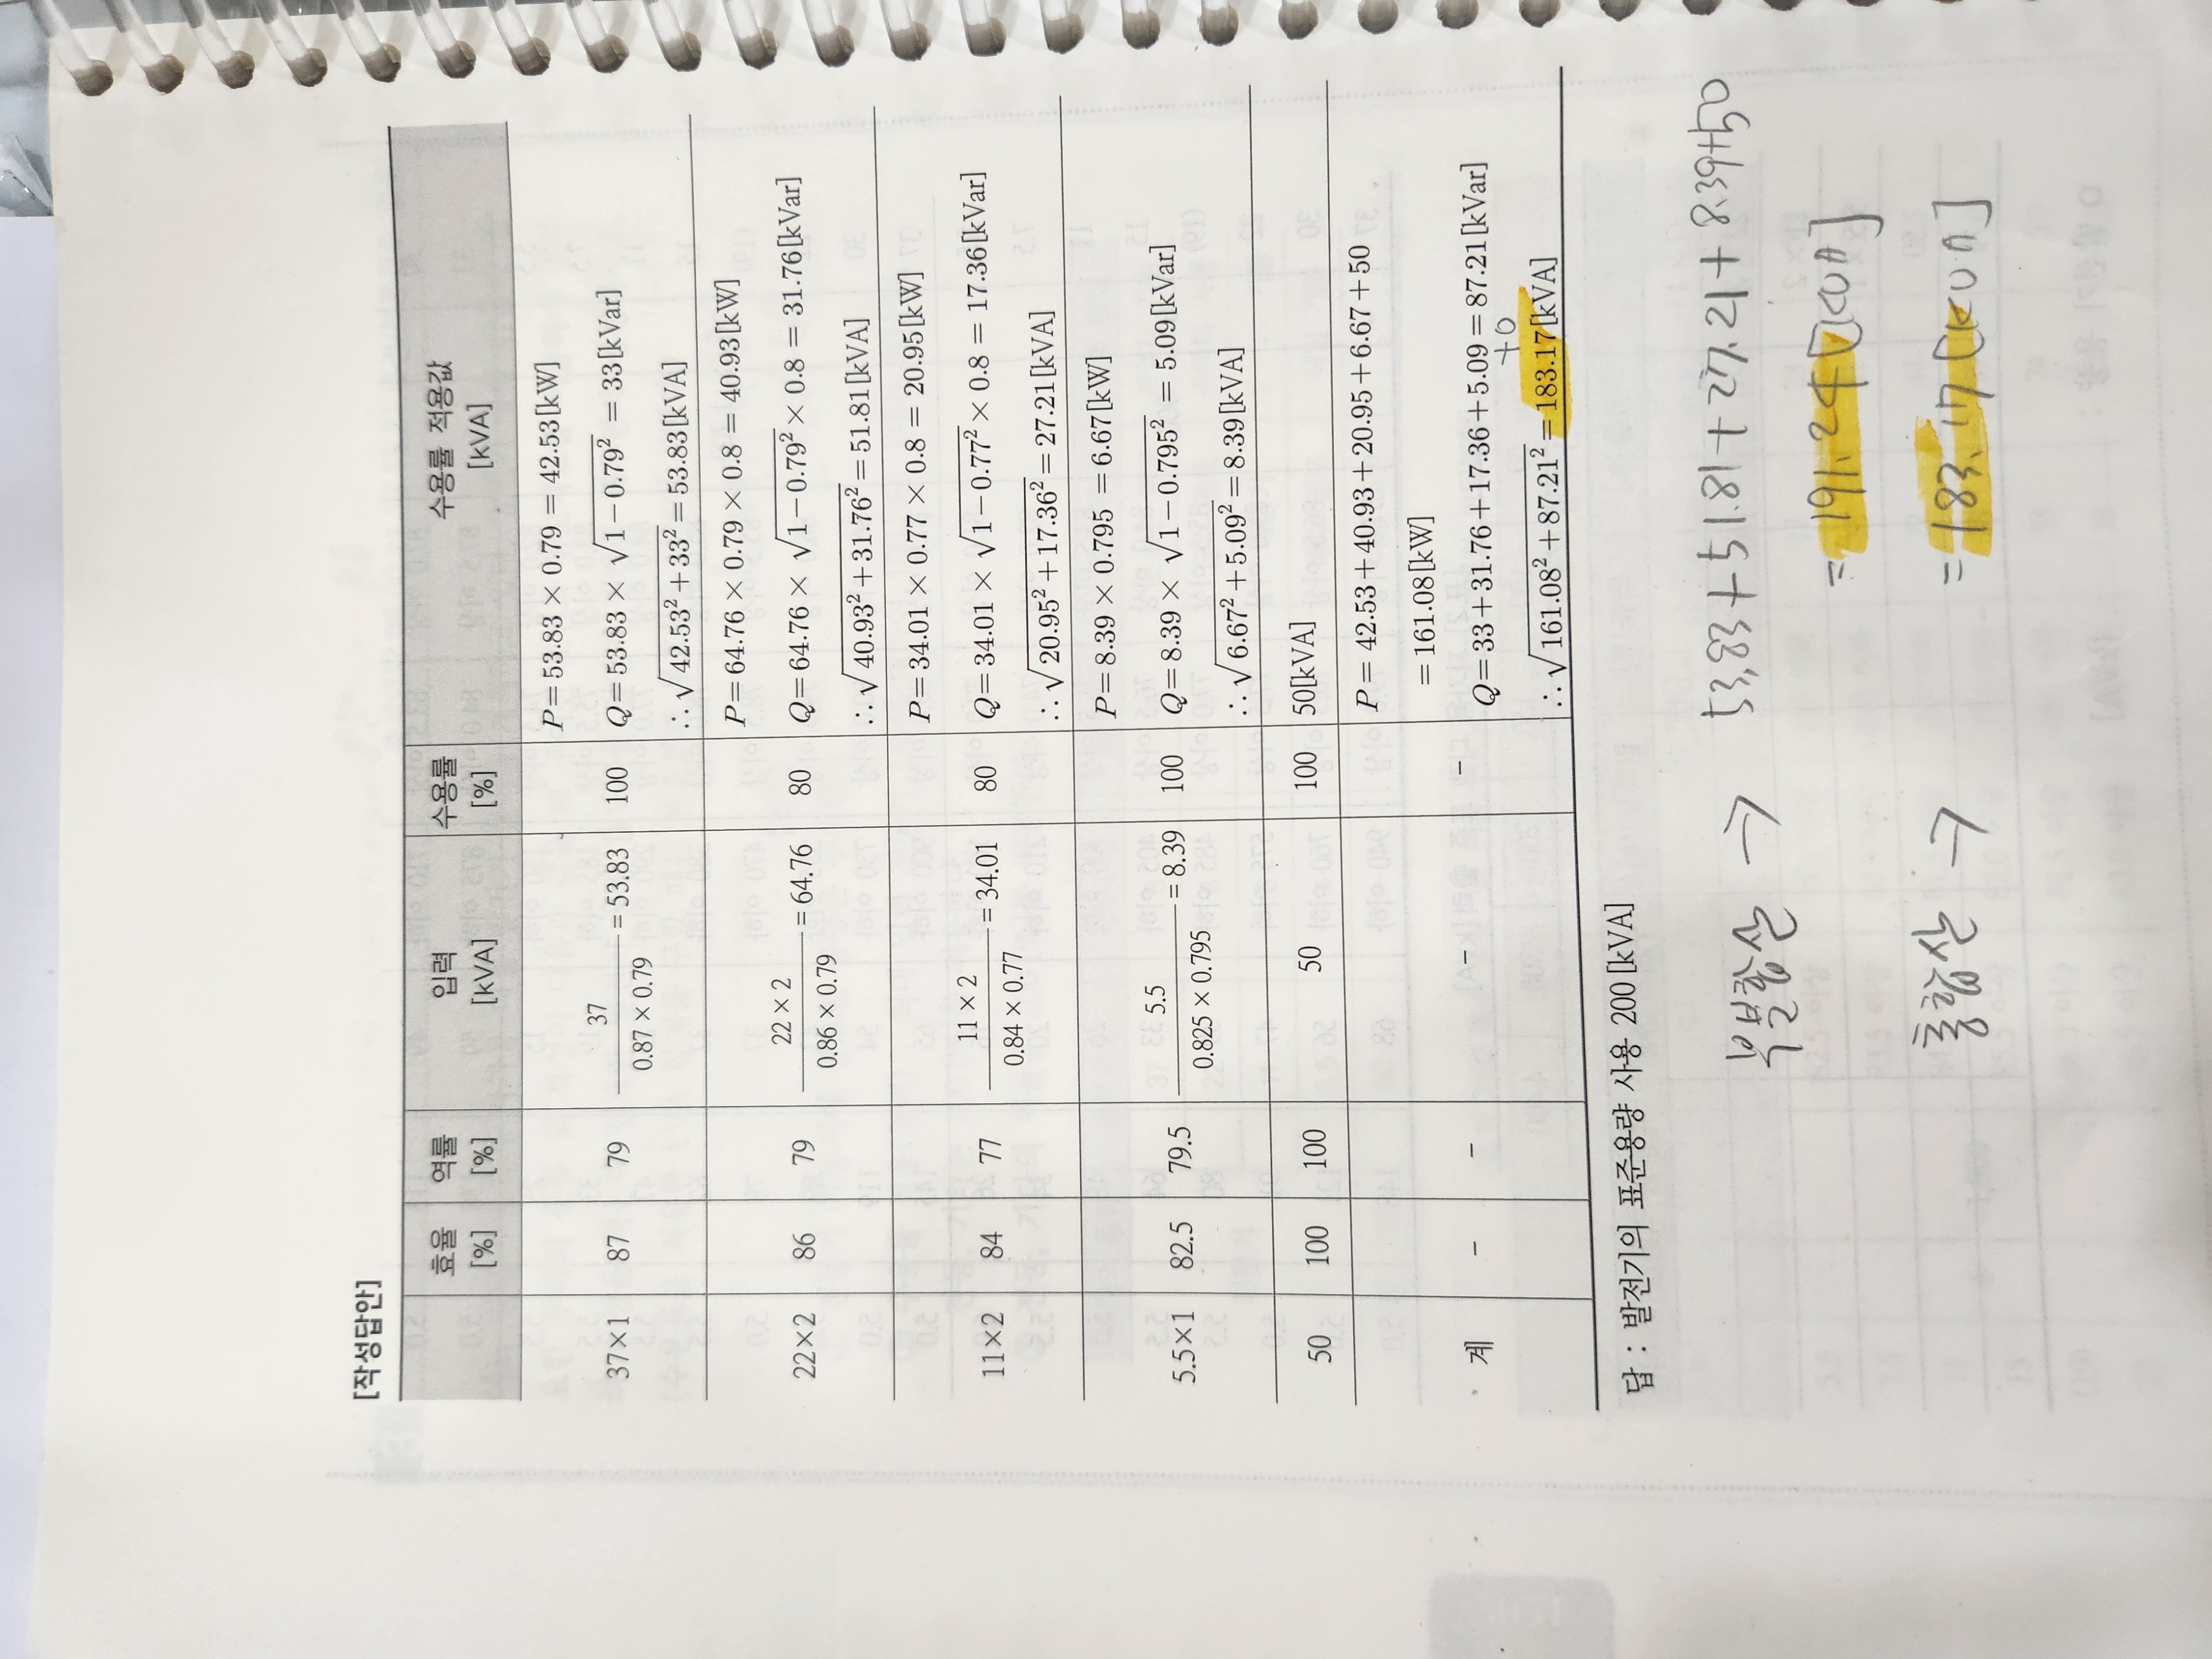 [작성답안]
효율 [%] 역률 [%] 입력 [kVA] 수용률 [%] 수용률 적용값 [kVA]
37×1 87 79 37/(0.87×0.79) = 53.83 100 P=53.83×0.79=42.53[kW]
Q=53.83×√(1−0.79²)=33[kVar]
∴√(42.53²+33²)=53.83[kVA]
22×2 86 79 (22×2)/(0.86×0.79) = 64.76 80 P=64.76×0.79×0.8=40.93[kW]
Q=64.76×√(1−0.79²)×0.8=31.76[kVar]
∴√(40.93²+31.76²)=51.81[kVA]
11×2 84 77 (11×2)/(0.84×0.77) = 34.01 80 P=34.01×0.77×0.8=20.95[kW]
Q=34.01×√(1−0.77²)×0.8=17.36[kVar]
∴√(20.95²+17.36²)=27.21[kVA]
5.5×1 82.5 79.5 5.5/(0.825×0.795) = 8.39 100 P=8.39×0.795=6.67[kW]
Q=8.39×√(1−0.795²)=5.09[kVar]
∴√(6.67²+5.09²)=8.39[kVA]
50 100 100 50 100 50[kVA]
계 − − − − P=42.53+40.93+20.95+6.67+50
=161.08[kW]
Q=33+31.76+17.36+5.09=87.21[kVar]
+0
∴√(161.08²+87.21²)=183.17[kVA]
답 : 발전기의 표준용량 사용 200[kVA]
→ 53.83+51.81+27.21+8.39+50
= 191.24[kVA]
→ = 183.17[kVA]